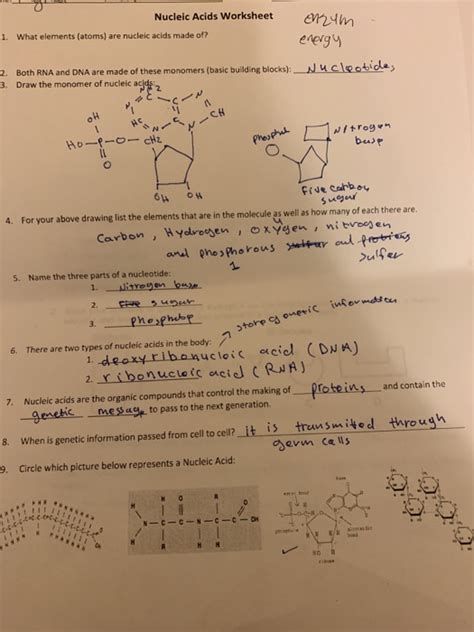 Nucleic Acids Worksheet
enzym
energy
1. What elements (atoms) are nucleic acids made of?
2. Both RNA and DNA are made of these monomers (basic building blocks): Nucleotides
3. Draw the monomer of nucleic acids:
NH2
N C C N
HC N C N CH
OH
HO-P-O-CH2
O
OH OH
phosphat
Nitrogen
base
Five carbon
sugar
4. For your above drawing list the elements that are in the molecule as well as how many of each there are.
Carbon, Hydrogen, oxygen, nitrogen
and phosphorous and
1
sulfer
5. Name the three parts of a nucleotide:
1. Nitrogen base
2. Five sugar
3. phosphate
store genetic information
6. There are two types of nucleic acids in the body:
1. deoxyribonucloic acid (DNA)
2. ribonucloic acid (RNA)
7. Nucleic acids are the organic compounds that control the making of proteins and contain the
genetic messag to pass to the next generation.
8. When is genetic information passed from cell to cell? it is transmited through
germ cells
9. Circle which picture below represents a Nucleic Acid:
H O R O
H N-C-C-N-C-C-OH
R H H
base
ester bond
phosphate
bond
HO R
ribose